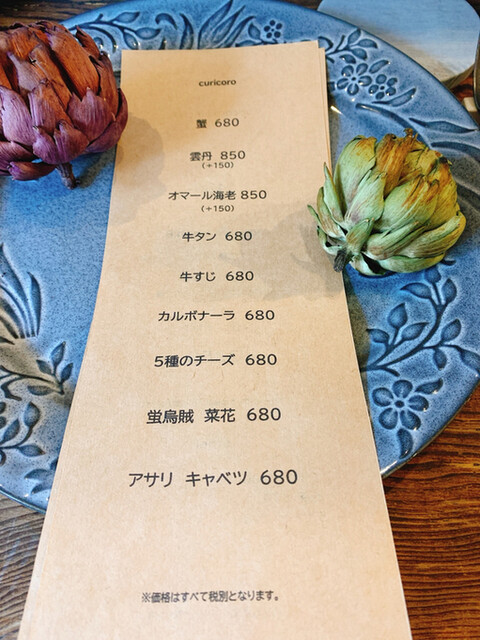 curicoro
蟹 680
雲丹 850
(+150)
オマール海老 850
(+150)
牛タン 680
牛すじ 680
カルボナーラ 680
5種のチーズ 680
蛍烏賊 菜花 680
アサリ キャベツ 680
※価格はすべて税別となります。